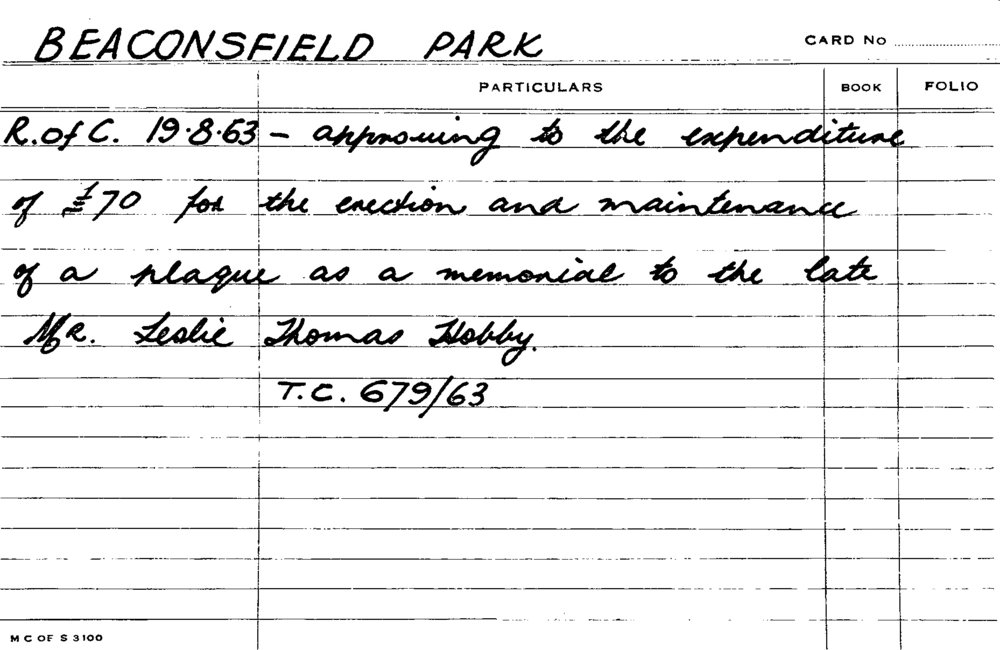 BEACONSFIELD PARK
CARD No
PARTICULARS BOOK FOLIO
R. of C. 19.8.63 – approving to the expenditure
of £70 for the erection and maintenance
of a plaque as a memorial to the late
Mr. Leslie Thomas Hobby.
T.C. 679/63
M C OF S 3100